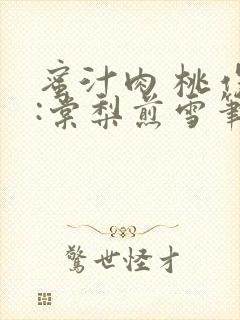 蜜汁肉桃作
:棠梨煎雪筆
驚世怪才